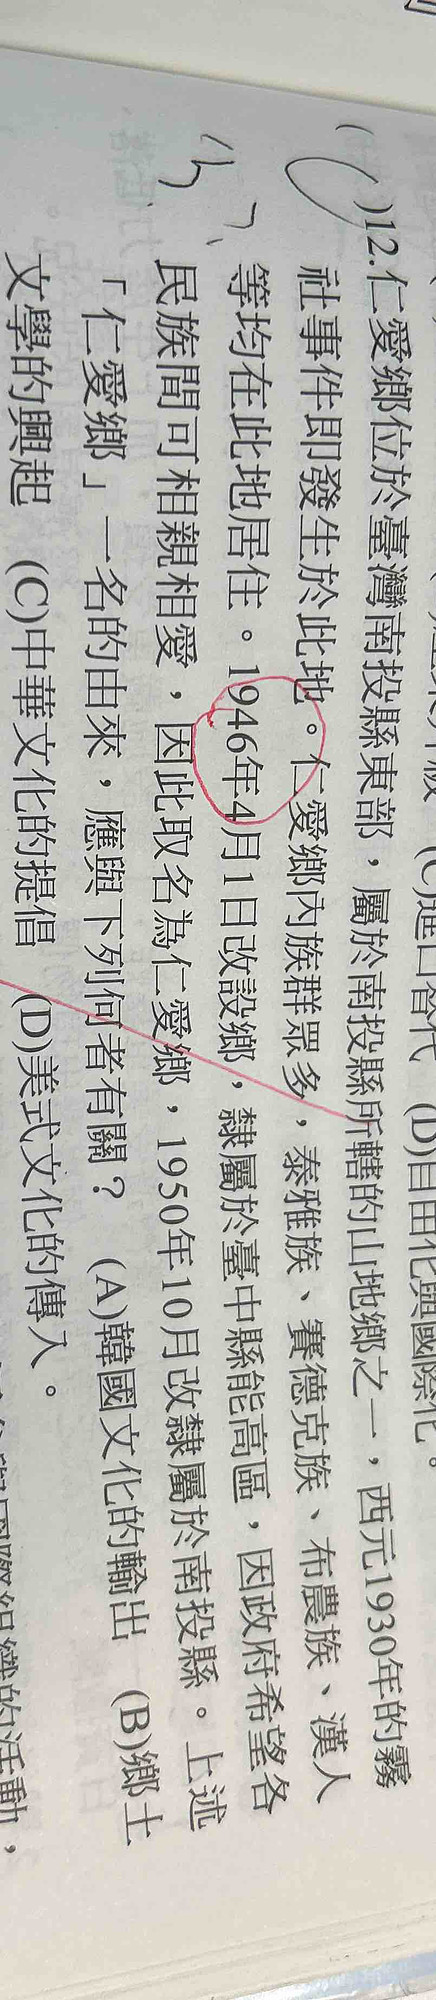 (C)進口替代 (D)自由化與國際化。
( )12.仁愛鄉位於臺灣南投縣東部，屬於南投縣所轄的山地鄉之一，西元1930年的霧
社事件即發生於此地。仁愛鄉內族群眾多，泰雅族、賽德克族、布農族、漢人
等均在此地居住。1946年4月1日改設鄉，隸屬於臺中縣能高區，因政府希望各
民族間可相親相愛，因此取名為仁愛鄉，1950年10月改隸屬於南投縣。上述
「仁愛鄉」一名的由來，應與下列何者有關？ (A)韓國文化的輸出 (B)鄉土
文學的興起 (C)中華文化的提倡 (D)美式文化的傳入。